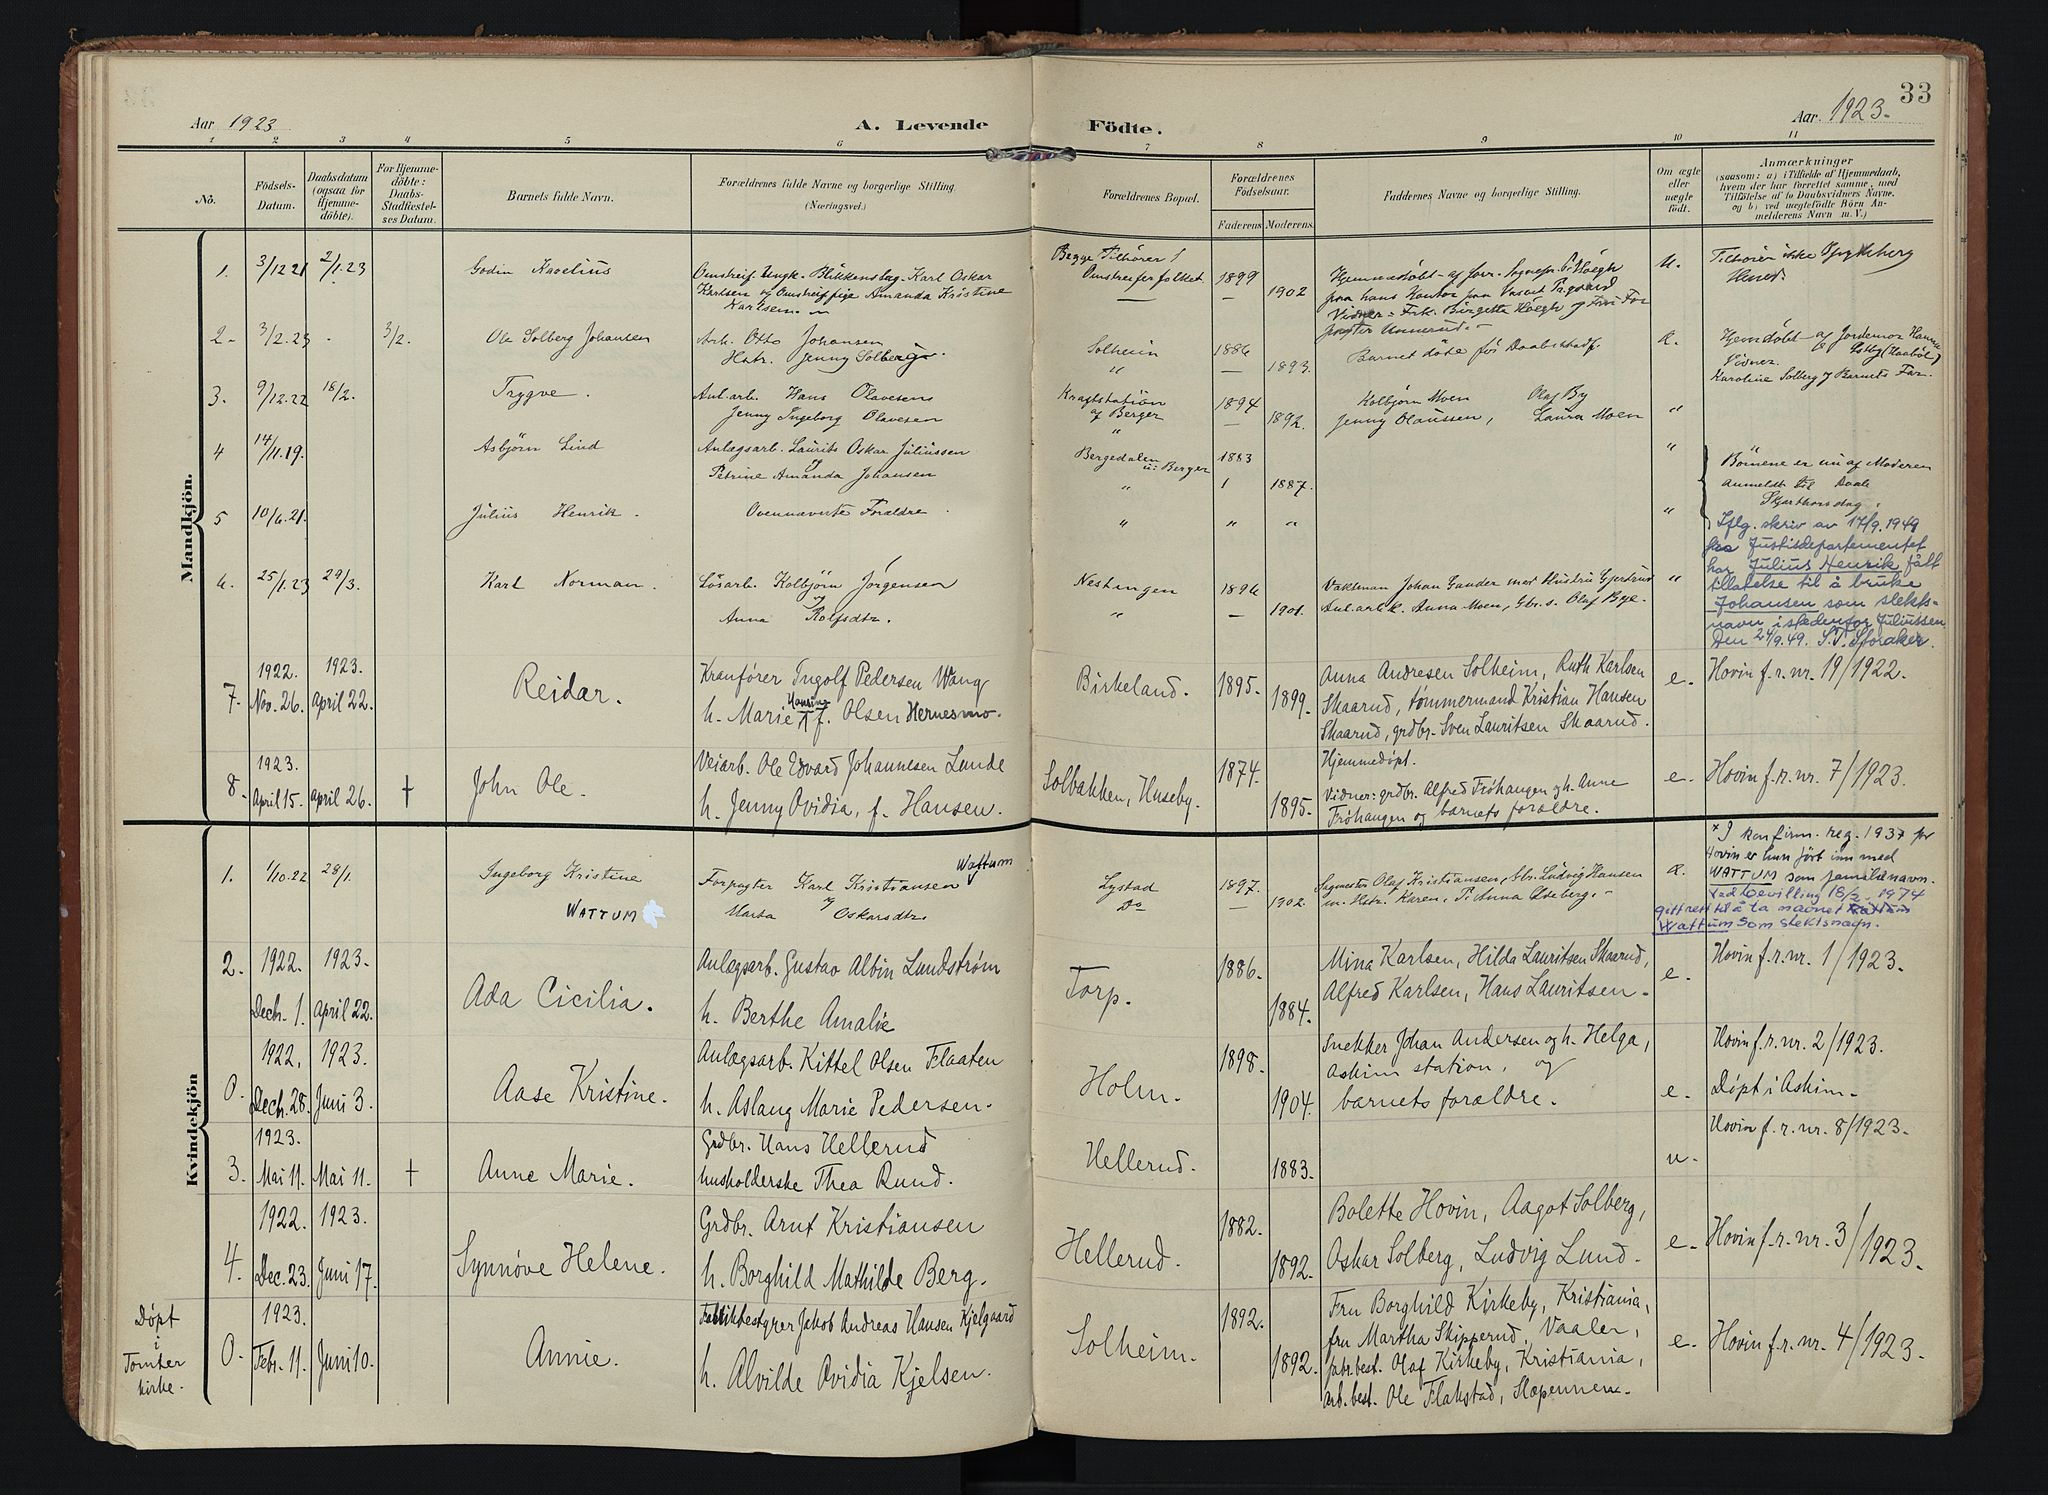 33
Aar 1923
A. Levende Födte.
Aar. 1923.
1 2 3 4 5 6 7 8 9 10 11
No.
Födsels-
Datum.
Daabsdatum
(ogsaa for
Hjemme-
döbte).
For Hjemme-
döbte:
Daabs-
Stadfæstel-
ses Datum.
Barnets fulde Navn.
Forældrenes fulde Navne og borgerlige Stilling.
(Næringsvei.)
Forældrenes Bopæl.
Forældrenes
Födselsaar.
Faderens Moderens
Faddernes Navne og borgerlige Stilling.
Om ægte
eller
uægte
födt.
Anmærkninger
(saasom: a) i Tilfælde af Hjemmedaab,
hvem der har forrettet samme, med
Tilföielse af to Daabsvidners Navne,
og b) ved uægtefödte Börn An-
melderens Navn m. V.)
Mandkjön.
1. 3/12 21 2/1.23
Omstreif. Ungk. Blikkenslag. Karl Oskar
Karlsen og Omstreifpige Amanda Kristine
Karlsen.
Begge Tilhører
Omstreiferfolket
1899
1902
u.
Tilhører ikke
2. 3/2.23 3/2.
Ole Solberg Johansen
Arb. Otto Johansen
Hstr. Jenny Solberg.
Solheim
"
1886
1893.
Barnet døde før Daabsstadf.
Hjemdøbt af Jordemor Hanna
Vidner
Karoline Solberg & Barnets Far.
3. 9/12.22 18/2.
Trygve.
Anl.arb. Hans Olavesen
Jenny Ingeborg Olavesen
Kraftstation
af Berger
"
1894
1892.
Kolbjørn Moen Olaf By
Jenny Olaussen, Laura Moen
"
4 14/11.19.
Asbjørn Lind
Anlægsarb. Laurits Oskar Juliussen
Petrine Amanda Johansen
Bergedalen
u: Berger
"
1883
1887.
"
Børnene er nu af Moderen
Anmeldt til Daab
Skjærthorsdag.
5 10/6.21.
Julius Henrik.
Ovennævnte Forældre.
" " " "
Iflg. skriv av 17/9.1949
fra Justisdepartementet
har Julius Henrik fått
tillatelse til å bruke
Johansen som slekts-
navn istedenfor Juliussen
Den 24/9.49. S.T. Storaker.
6. 25/1.23 29/3.
Karl Norman.
Løsarb. Kolbjørn Jørgensen
og
Anna Rolfsdtr.
Nestingen
"
1896
1901.
Vaktman Johan Sander med Hustru Gjertrud
Anl.arb. Anna Moen, Gbr.s. Olaf Bye.
"
7. 1922. Nov. 26. 1923. April 22.
Reidar.
Kranfører Ingolf Pedersen Wang
h. Marie Hansine f. Olsen Hernesmo.
Birkeland.
1895.
1899.
Anna Andresen Solheim, Ruth Karlsen
Skaarud, tømmermand Kristian Hansen
Skaarud, grdbr. Sven Lauritsen Skaarud.
e.
Hovin f.r.nr. 19/1922.
8. 1923. April 15. April 26. †
John Ole.
Veiarb. Ole Edvard Johannesen Lunde
h. Jenny Ovidia, f. Hansen.
Solbakken, Huseby.
1874.
1895.
Hjemmedøpt.
Vidner: grdbr. Alfred Frøhaugen og h. Anne
Frøhaugen og barnets forældre.
e.
Hovin f.r.nr. 7/1923.
Kvindekjön
1. 1/10.22 28/1.
Ingeborg Kristine
WATTUM
Forpagter Karl Kristiansen Wattum
og
Marta Oskarsdtr.
Lystad
Do
1897.
1902.
Sagmester Olaf Kristiansen, Gbr. Ludvig Hansen
m. Hstr. Karen, P. Anna
* I konfirm. reg. 1937 for
Hovin er hun ført inn med
WATTUM som familienavn.
Ved bevilling 18/2 1974
gitt rett til å ta navnet
Wattum som slektsnavn.
2. 1922. Decb. 1. 1923. April 22.
Ada Cicilia.
Anlægsarb. Gustav Albin Lundstrøm
h. Berthe Amalie
Torp.
1886.
1884.
Mina Karlsen, Hilda Lauritsen Skaarud,
Alfred Karlsen, Hans Lauritsen.
e.
Hovin f.r.nr. 1/1923.
0. 1922. Decb. 28. 1923. Juni 3.
Aase Kristine.
Anlægsarb. Kittel Olsen Flaaten
h. Aslaug Marie Pedersen.
Holm.
1898.
1904.
Snekker Johan Andersen og h. Helga,
Askim station, og
barnets forældre.
e.
Hovin f.r.nr. 2/1923.
Døpt i Askim.
3. 1923. Mai 11. Mai 11. †
Anne Marie.
Grdbr. Hans Hellerud
husholderske Thea Rund.
Hellerud.
1883.
u.
Hovin f.r.nr. 8/1923.
4. 1922. Dec. 23. 1923. Juni 17.
Synnøve Helene.
Grdbr. Arnt Kristiansen
h. Borghild Mathilde Berg.
Hellerud.
1882.
1892.
Bolette Hovin, Aagot Solberg,
Oskar Solberg, Ludvig Lund.
e.
Hovin f.r.nr. 3/1923.
Døpt
i
Tomter
kirke.
0. 1923. Febr. 11. Juni 10.
Annie.
Fabrikbestyrer Jakob Andreas Hansen Kjelgaard
h. Alvilde Ovidia Kjelsen.
Solheim.
1892.
1892.
Fru Borghild Kirkeby, Kristiania,
fru Martha Skipperud, Vaaler,
fabr.best. Olaf Kirkeby, Kristiania,
arb.best. Ole Flakstad, Slepennen.
e.
Hovin f.r.nr. 4/1923.